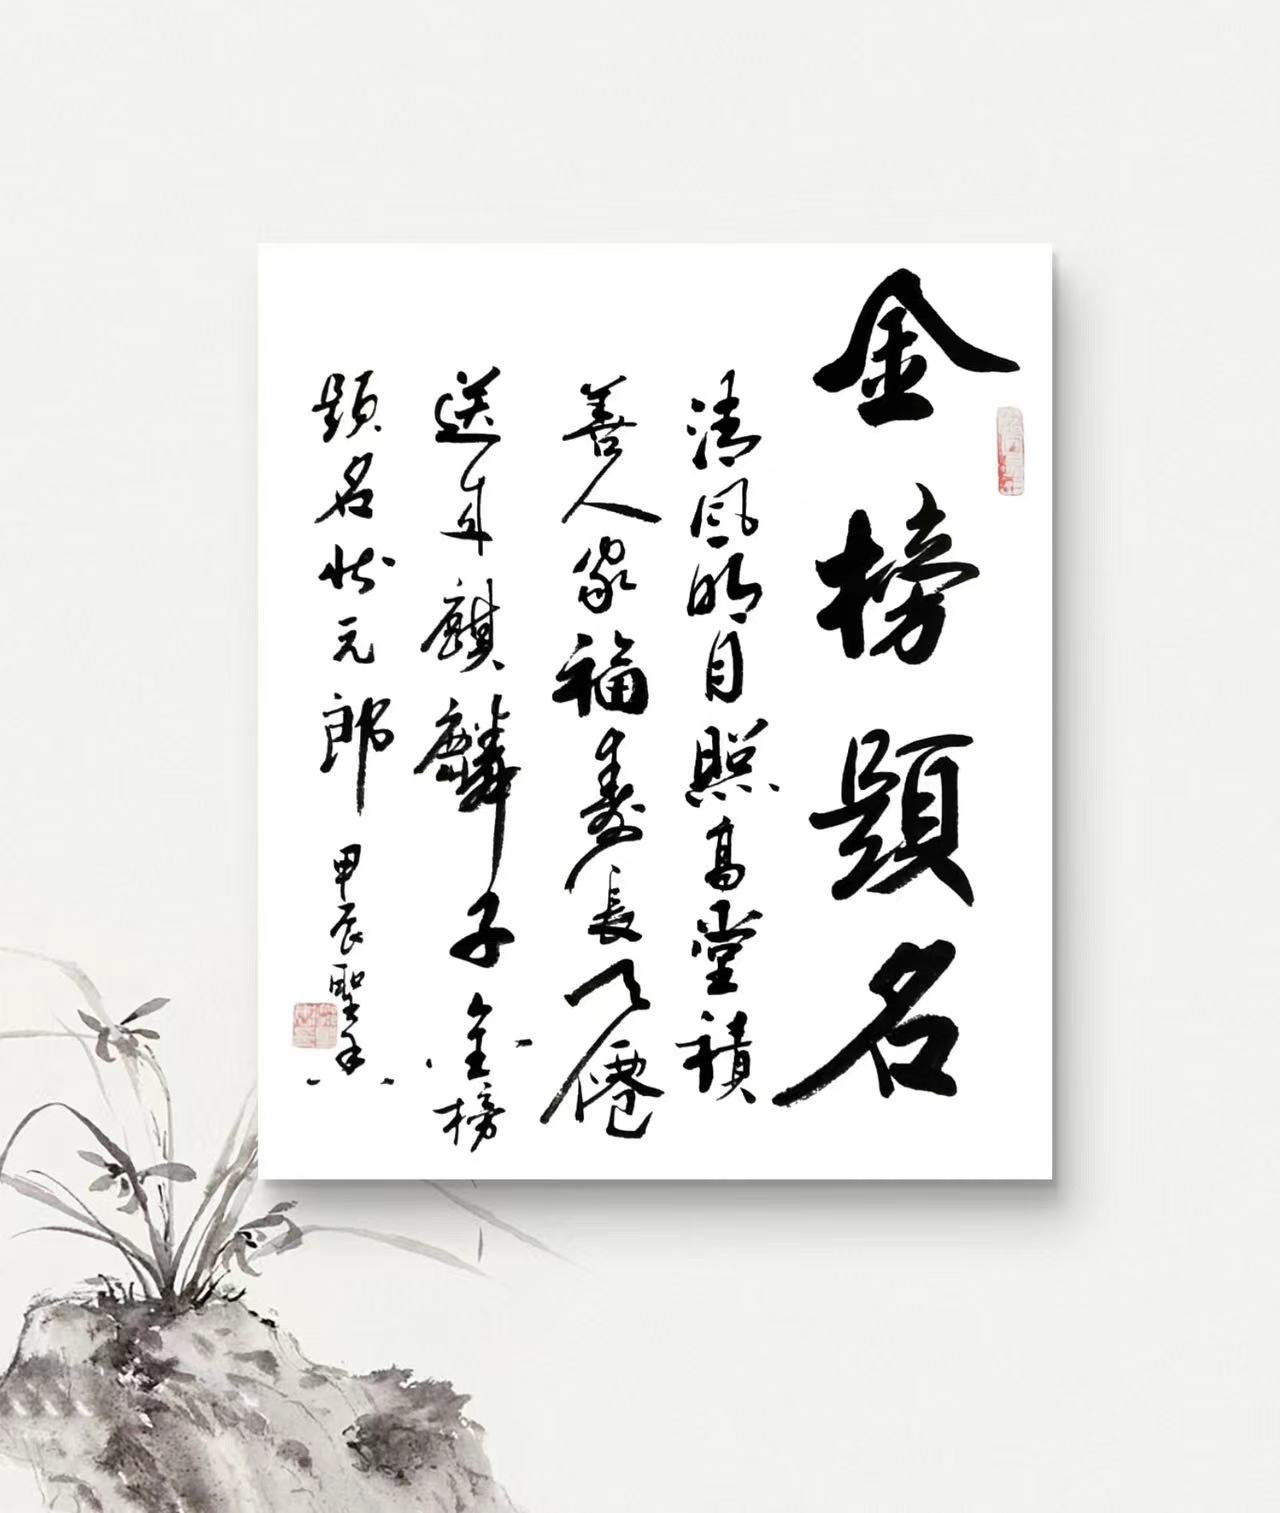 金榜題名
清風明月照高堂積
善人家福壽長天僊
送來麒麟子金榜
題名狀元郎 甲辰聖手